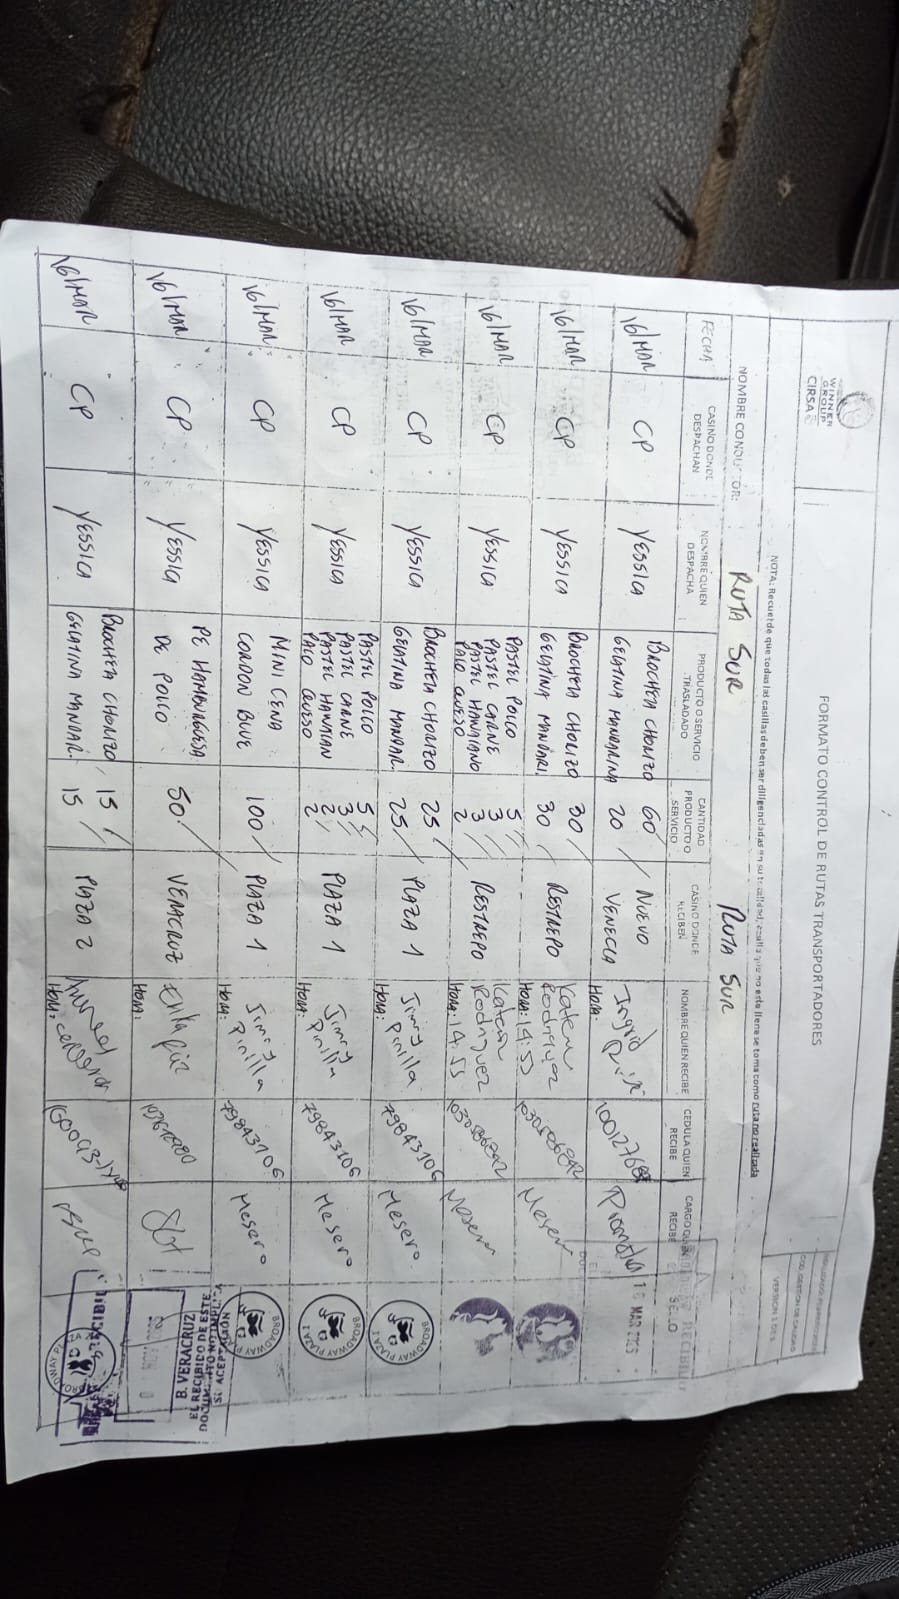 WINNER
GROUP
CIRSA
FORMATO CONTROL DE RUTAS TRANSPORTADORES
VERSION
NOTA: Recuerde que todas las casillas deben ser diligenciadas en su totalidad, casilla que no este llena se toma como ruta no realizada
NOMBRE CONDUCTOR: RUTA SUR RUTA SUR
FECHA
CASINO DONDE DESPACHAN
NOMBRE QUIEN DESPACHA
PRODUCTO O SERVICIO TRASLADADO
CANTIDAD PRODUCTO O SERVICIO
CASINO DONDE RECIBEN
NOMBRE QUIEN RECIBE
CEDULA QUIEN RECIBE
CARGO QUIEN RECIBE
SELLO
16/MAR CP YESSICA BROCHETA CHORIZO 60 NUEVO Ingrid
GELATINA MANDARINA 20 VENECIA HORA:
16/MAR CP YESSICA BROCHETA CHORIZO 30 RESTREPO Katerin Rodriguez
GELATINA MANDARI 30 HORA: 14:55
16/MAR CP YESSICA PASTEL POLLO 5 RESTREPO Katerin Rodriguez
PASTEL CARNE 3
PASTEL HAWAIANO 3
PALO QUESO 2 HORA: 14:55
16/MAR CP YESSICA BROCHETA CHORIZO 25 PLAZA 1 Jimmy Pinilla 79843106 Mesero BROADWAY PLAZA 1
GELATINA MANDAR. 25 HORA:
16/MAR CP YESSICA PASTEL POLLO 5 PLAZA 1 Jimmy Pinilla 79843106 Mesero BROADWAY PLAZA 1
PASTEL CARNE 3
PASTEL HAWAIAN 2
PALO QUESO 2 HORA:
16/MAR CP YESSICA MINI CENA 100 PLAZA 1 Jimmy Pinilla 79843106 Mesero BROADWAY
CORDON BLUE HORA:
16/MAR CP YESSICA PE HAMBURGUESA 50 VERACRUZ
DE POLLO HORA:
B. VERACRUZ
EL RECIBIDO DE ESTE
DOCUMENTO NO IMPLICA
SU ACEPTACION
16/MAR CP YESSICA BROCHETA CHORIZO 15 PLAZA 2
GELATINA MANDAR. 15 HORA: